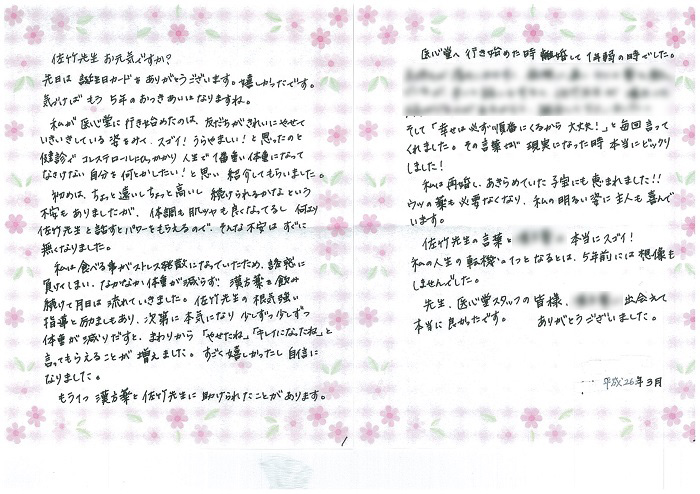 佐竹先生 お元気ですか?
先日は 誕生日カードを ありがとうございます。嬉しかったです。
気づけば もう 5年のおつきあいになりますね。
私が 医心堂に 行き始めたのは、友だちが きれいに やせて
いきいきしている 姿をみて、スゴイ! うらやましい! と思ったのと
健診で コレステロールにひっかかり 人生で 1番重い体重になって
なさけない 自分を 何とかしたい! と思い 紹介してもらいました。
初めは、ちょっと遠いし ちょっと高いし 続けられるかな という
不安も ありましたが、体調も 肌ツヤも 良くなってるし 何より
佐竹先生と 話すと パワーをもらえるので、そんな不安は すぐに
無くなりました。
私は 食べる事が ストレス発散に なっていたため、誘惑に
負けてしまい、なかなか体重が 減らず、漢方薬を 飲み
続けて 月日は 流れていきました。佐竹先生の 根気強い
指導と 励ましもあり、次第に 本気になり 少しずつ 少しずつ
体重が 減りだすと、まわりから 「やせたね」「キレイになったね」と
言ってもらえることが 増えました。すごく嬉しかったし 自信に
なりました。
もう1つ 漢方薬と 佐竹先生に 助けられたことが あります。
1
医心堂へ 行き始めた時 離婚して 1年弱の時でした。
そして「幸せは 必ず 順番にくるから 大丈夫!」と 毎回 言って
くれました。その言葉が 現実になった時 本当に ビックリ
しました!
私は 再婚し、あきらめていた 子宝にも 恵まれました!!
ウツの薬も 必要なくなり、私の 明るい姿に 主人も 喜んで
います。
佐竹先生の 言葉と 本当に スゴイ!
私の人生の 転機の1つと なるとは、5年前には 想像も
しませんでした。
先生、医心堂スタッフの 皆様、 出会えて
本当に 良かったです。 ありがとうございました。
平成26年3月